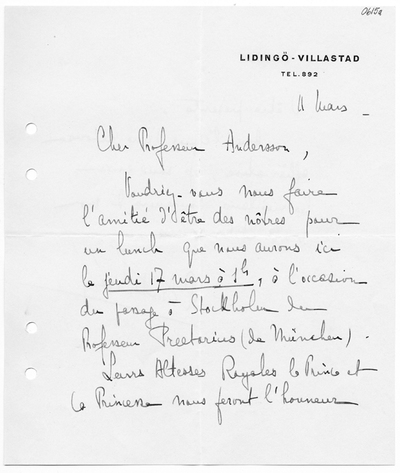 0615a
LIDINGÖ-VILLASTAD
TEL. 892
11 Mars _
Cher Professeur Andersson,
Voudriez-vous nous faire
l'amitié d'être des nôtres pour
un lunch que nous aurons ici
le jeudi 17 mars à 1h, à l'occasion
du passage à Stockholm du
Professeur Preetorius (de München).
Leurs Altesses Royales le Prince et
la Princesse nous feront l'honneur